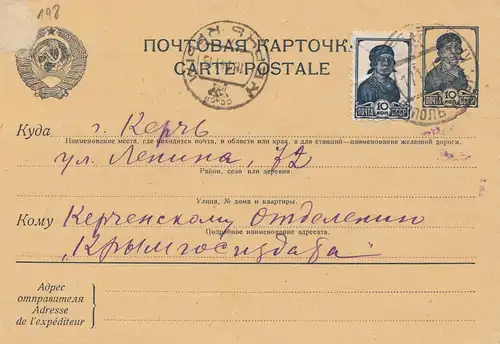 198
ПОЧТОВАЯ КАРТОЧК
CARTE POSTALE
10 10
ПОЧТА СССР ПОЧТА СССР
Куда г. Керчь
Наименование места, где находится почта, и области или края, а для станций—наименование железной дороги.
ул. Ленина, 72
Район, село или деревня.
Улица, № дома и квартиры.
Кому Керченскому отделению
Подробное наименование адресата.
„Крымгосиздата"
Адрес
отправителя
Adresse
de l'expéditeur